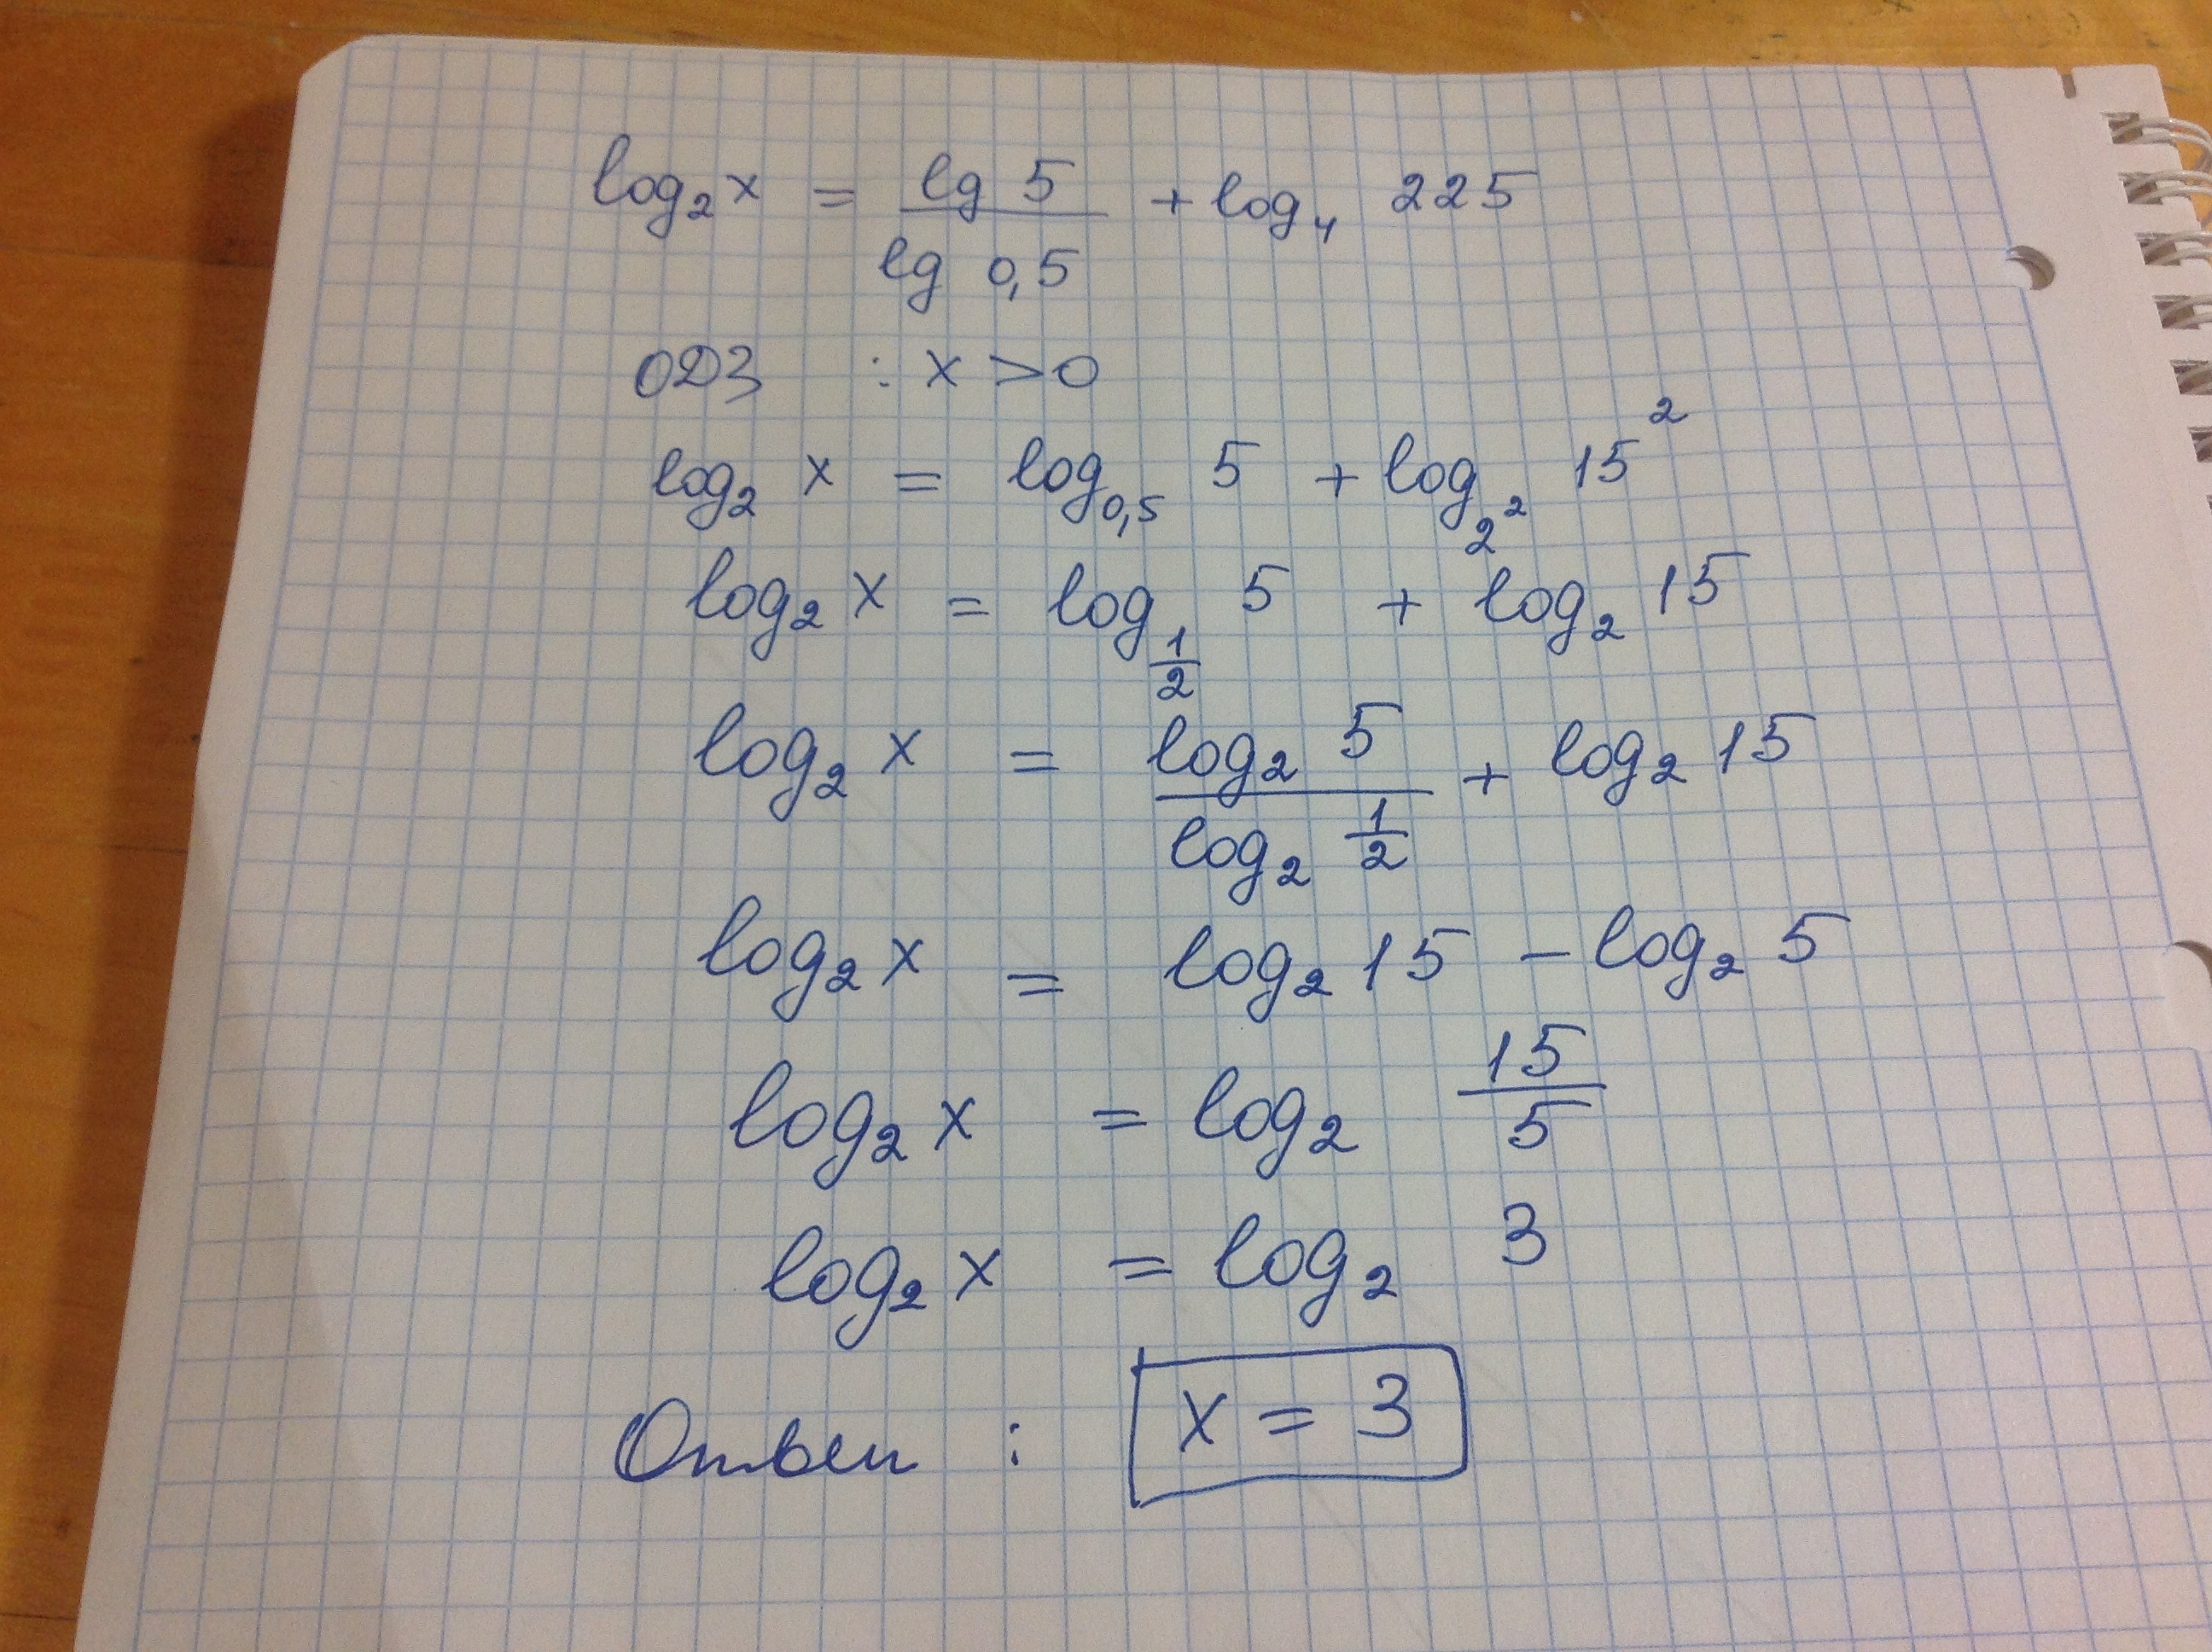 log₂ x = lg 5 / lg 0,5 + log₄ 225
ОДЗ : x > 0
log₂ x = log₀,₅ 5 + log₂² 15²
log₂ x = log_{1/2} 5 + log₂ 15
log₂ x = log₂ 5 / log₂ 1/2 + log₂ 15
log₂ x = log₂ 15 - log₂ 5
log₂ x = log₂ 15/5
log₂ x = log₂ 3
Ответ : x = 3